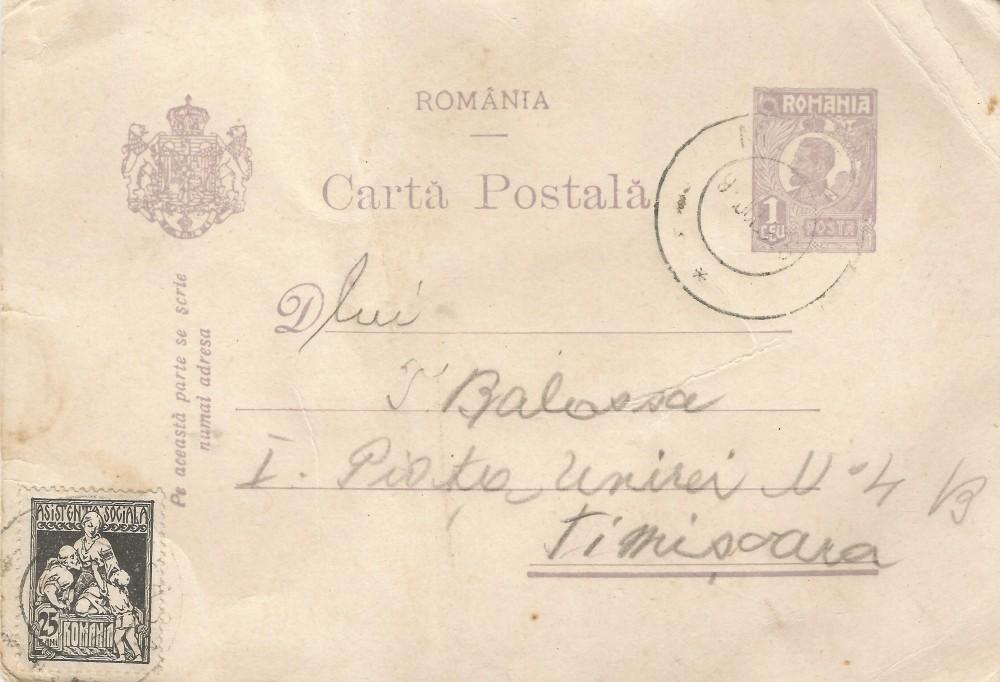 ROMÂNIA
Cartă Postală
ROMANIA
1
LEU
POSTA
Pe această parte se scrie
numai adresa
Dlui
T. Balassa
I. Piața Unirei No 4 B
Timișoara
ASISTENTA SOCIALA
25
BANI
ROMANIA